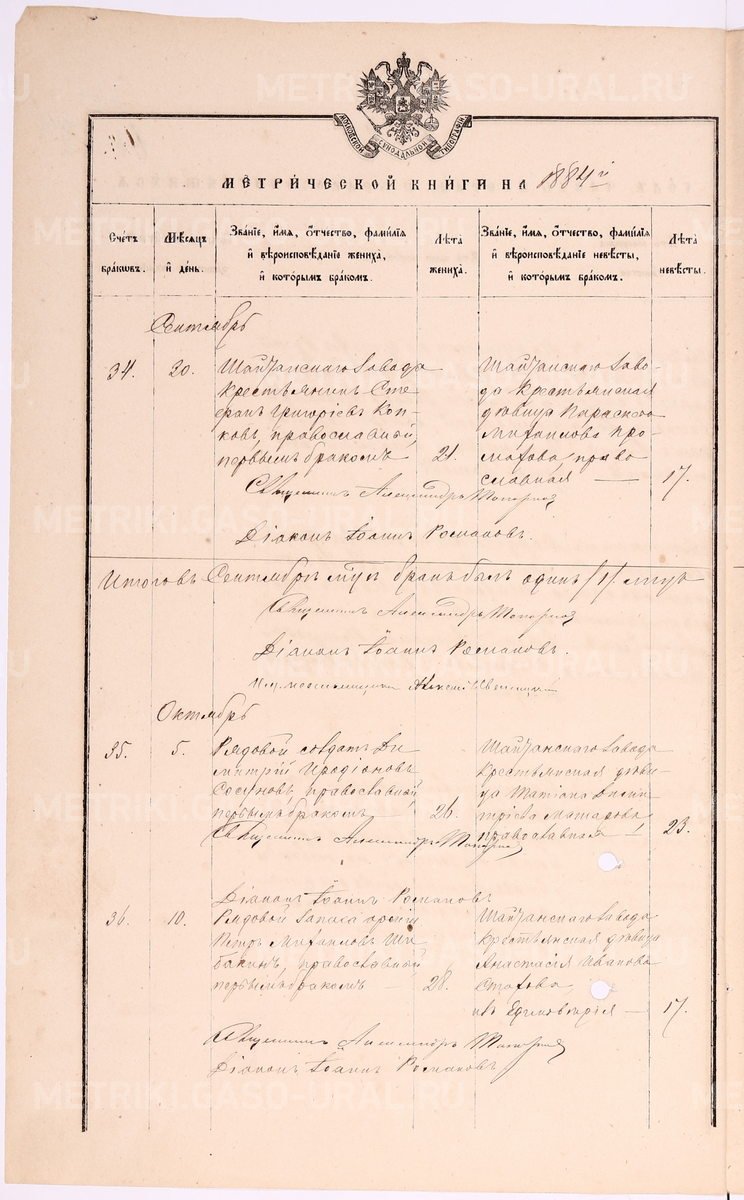 МОСКОВСКОЙ СѴНОДАЛЬНОЙ ТИПОГРАФІИ
МЕТРИЧЕСКОЙ КНИГИ НА 1884 й
Счетъ браковъ.
Мѣсяцъ и день.
Званіе, имя, отчество, фамилія и вѣроисповѣданіе жениха, и которымъ бракомъ.
Лѣта жениха.
Званіе, имя, отчество, фамилія и вѣроисповѣданіе невѣсты, и которымъ бракомъ.
Лѣта невѣсты.
Сентябрь
34.
20.
Шайтанскаго завода
крестьянинъ Сте
фанъ Григоріевъ Коп
ковъ, православный,
первымъ бракомъ
21.
Шайтанскаго заво-
да крестьянская
дѣвица Параскева
Михаилова
православная
17.
Священникъ Александръ
Діаконъ Іоаннъ Романовъ.
Итого въ Сентябрѣ м-цѣ бракъ былъ одинъ /1/
Священникъ Александръ
Діаконъ Іоаннъ Романовъ.
Октябрь
35.
5.
Рядовой солдатъ Ди
митрій Иродіоновъ
Сосуновъ, православный,
первымъ бракомъ
26.
Шайтанскаго завода
крестьянская дѣви
ца Татіана Дими
тріева
православная
23.
Священникъ Александръ
Діаконъ Іоаннъ Романовъ
36.
10.
Рядовой запаса арміи
Петръ Михаиловъ Ши
бакинъ, православный
первымъ бракомъ
28.
Шайтанскаго завода
крестьянская дѣвица
Анастасія Иванова
Стахова
изъ Единовѣрія
17.
Священникъ Александръ
Діаконъ Іоаннъ Романовъ
METRIKI.GASO-URAL.RU